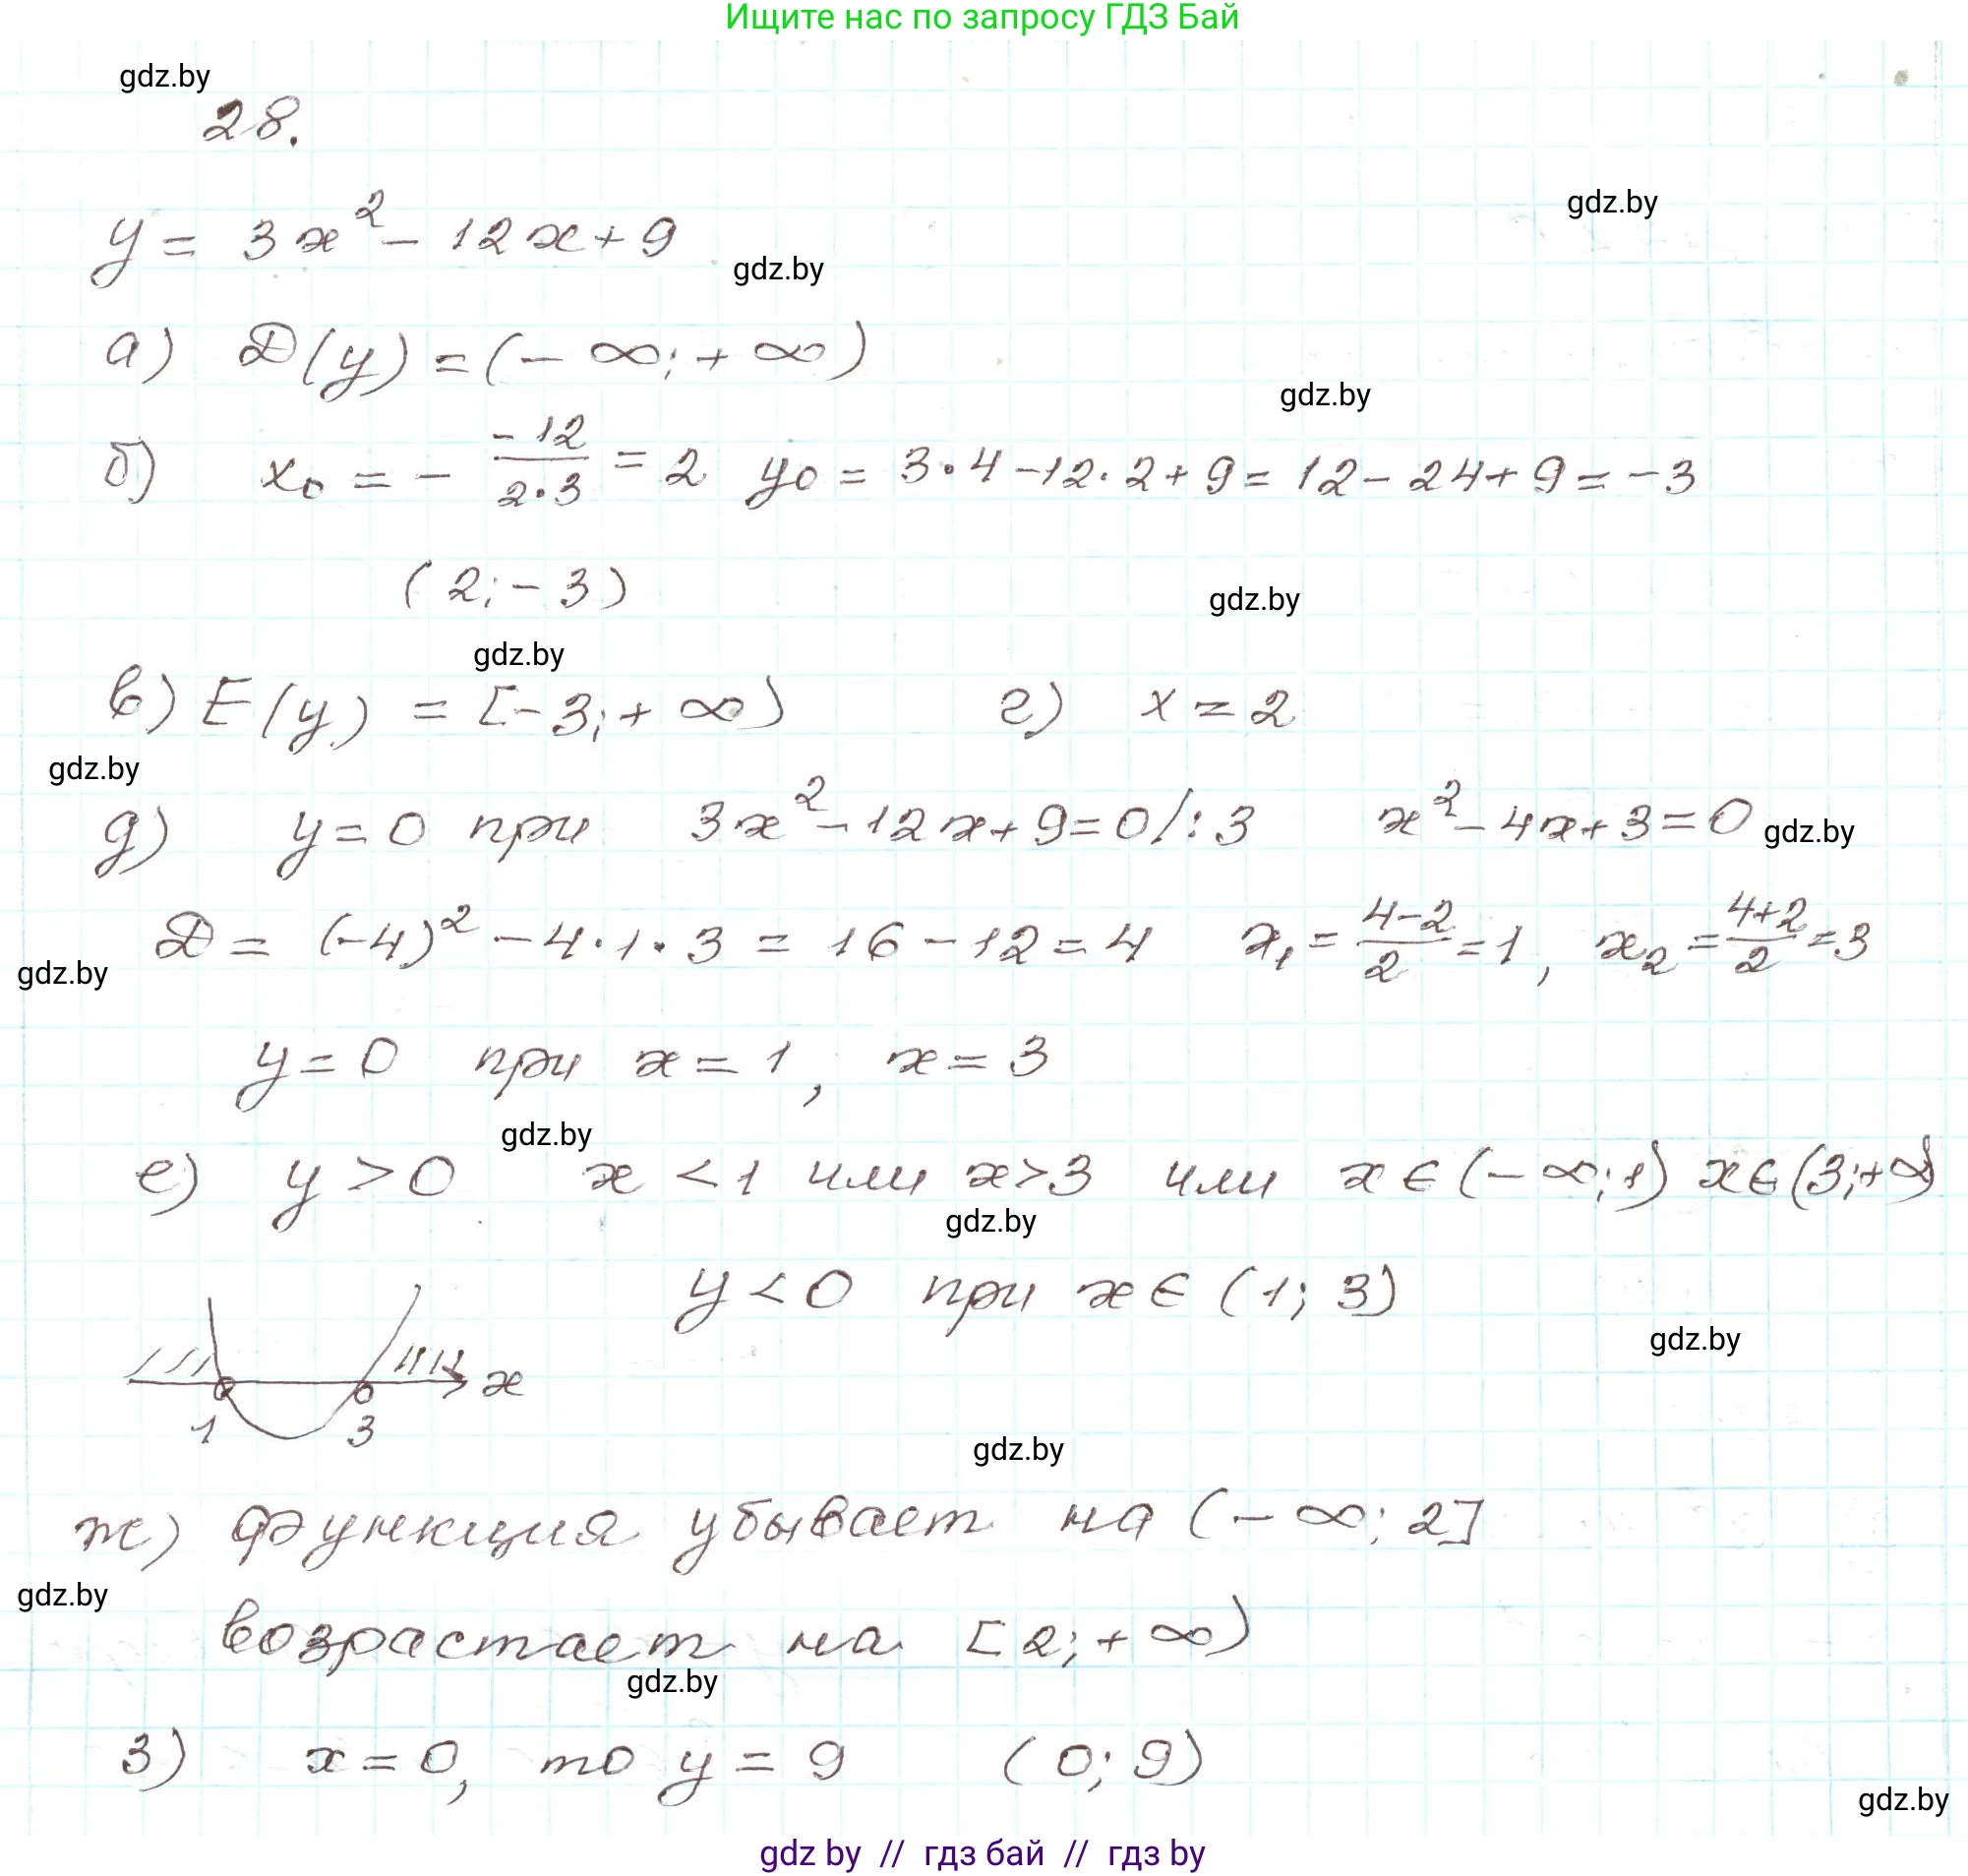 Ищите нас по запросу ГДЗ Бай
gdz.by
28.
gdz.by
y = 3x² - 12x + 9
gdz.by
а) D(y) = (- ∞; + ∞)
gdz.by
б) x₀ = - \frac{-12}{2·3} = 2 y₀ = 3·4 - 12·2 + 9 = 12 - 24 + 9 = -3
(2; - 3)
gdz.by
gdz.by
в) E(y) = [-3; + ∞) г) x = 2
gdz.by
д) y = 0 при 3x² - 12x + 9 = 0 /: 3 x² - 4x + 3 = 0
gdz.by
D = (-4)² - 4·1·3 = 16 - 12 = 4 x₁ = \frac{4-2}{2} = 1, x₂ = \frac{4+2}{2} = 3
gdz.by
y = 0 при x = 1, x = 3
gdz.by
е) y > 0 x < 1 или x > 3 или x ∈ (- ∞; 1) x ∈ (3; + ∞)
gdz.by
y < 0 при x ∈ (1; 3)
gdz.by
x
1 3
gdz.by
ж) функция убывает на (- ∞; 2]
gdz.by
возрастает на [2; + ∞)
gdz.by
з) x = 0, то y = 9 (0; 9)
gdz.by
gdz by // гдз бай // гдз by